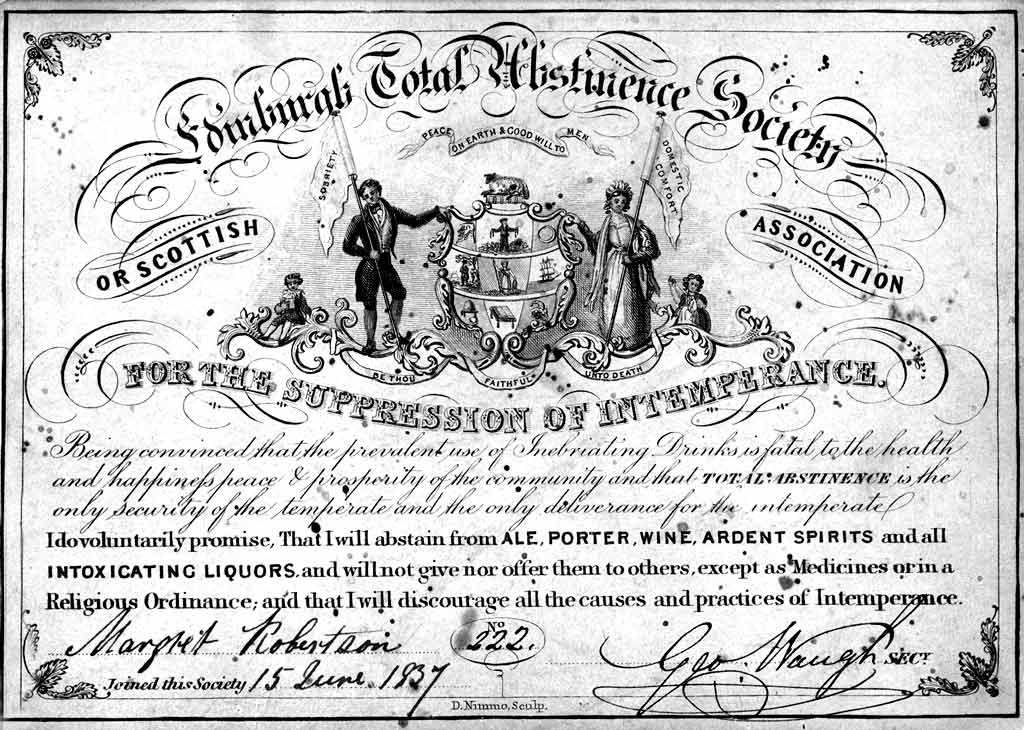 Edinburgh Total Abstinence Society
PEACE ON EARTH & GOOD WILL TO MEN
SOBRIETY
DOMESTIC COMFORT
OR SCOTTISH ASSOCIATION
BE THOU FAITHFUL UNTO DEATH
FOR THE SUPPRESSION OF INTEMPERANCE.
Being convinced that the prevalent use of Inebriating Drinks is fatal to the health
and happiness peace & prosperity of the community and that TOTAL ABSTINENCE is the
only security of the temperate and the only deliverance for the intemperate
I do voluntarily promise, That I will abstain from ALE, PORTER, WINE, ARDENT SPIRITS and all
INTOXICATING LIQUORS, and will not give nor offer them to others, except as Medicines or in a
Religious Ordinance; and that I will discourage all the causes and practices of Intemperance.
Margret Robertson No 222. Geo. Waugh SECY.
Joined this Society 15 June 1837
D. Nimmo, Sculp.